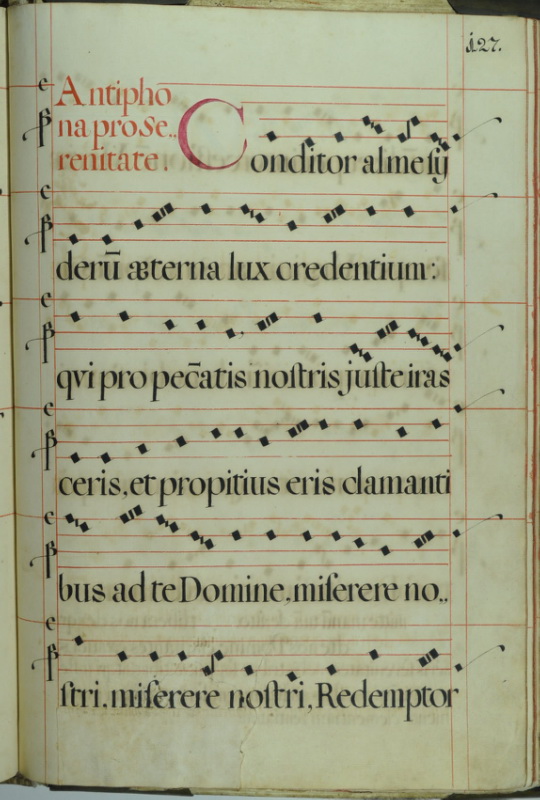 127.
Antipho
na pro Se..
renitate.
Conditor alme ſÿ
derū æterna lux credentium:
qvi pro pec̄atis noſtris juſte iras
ceris, et propitius eris clamanti
bus ad te Domine, miſerere no..
ſtri, miſerere noſtri, Redemptor